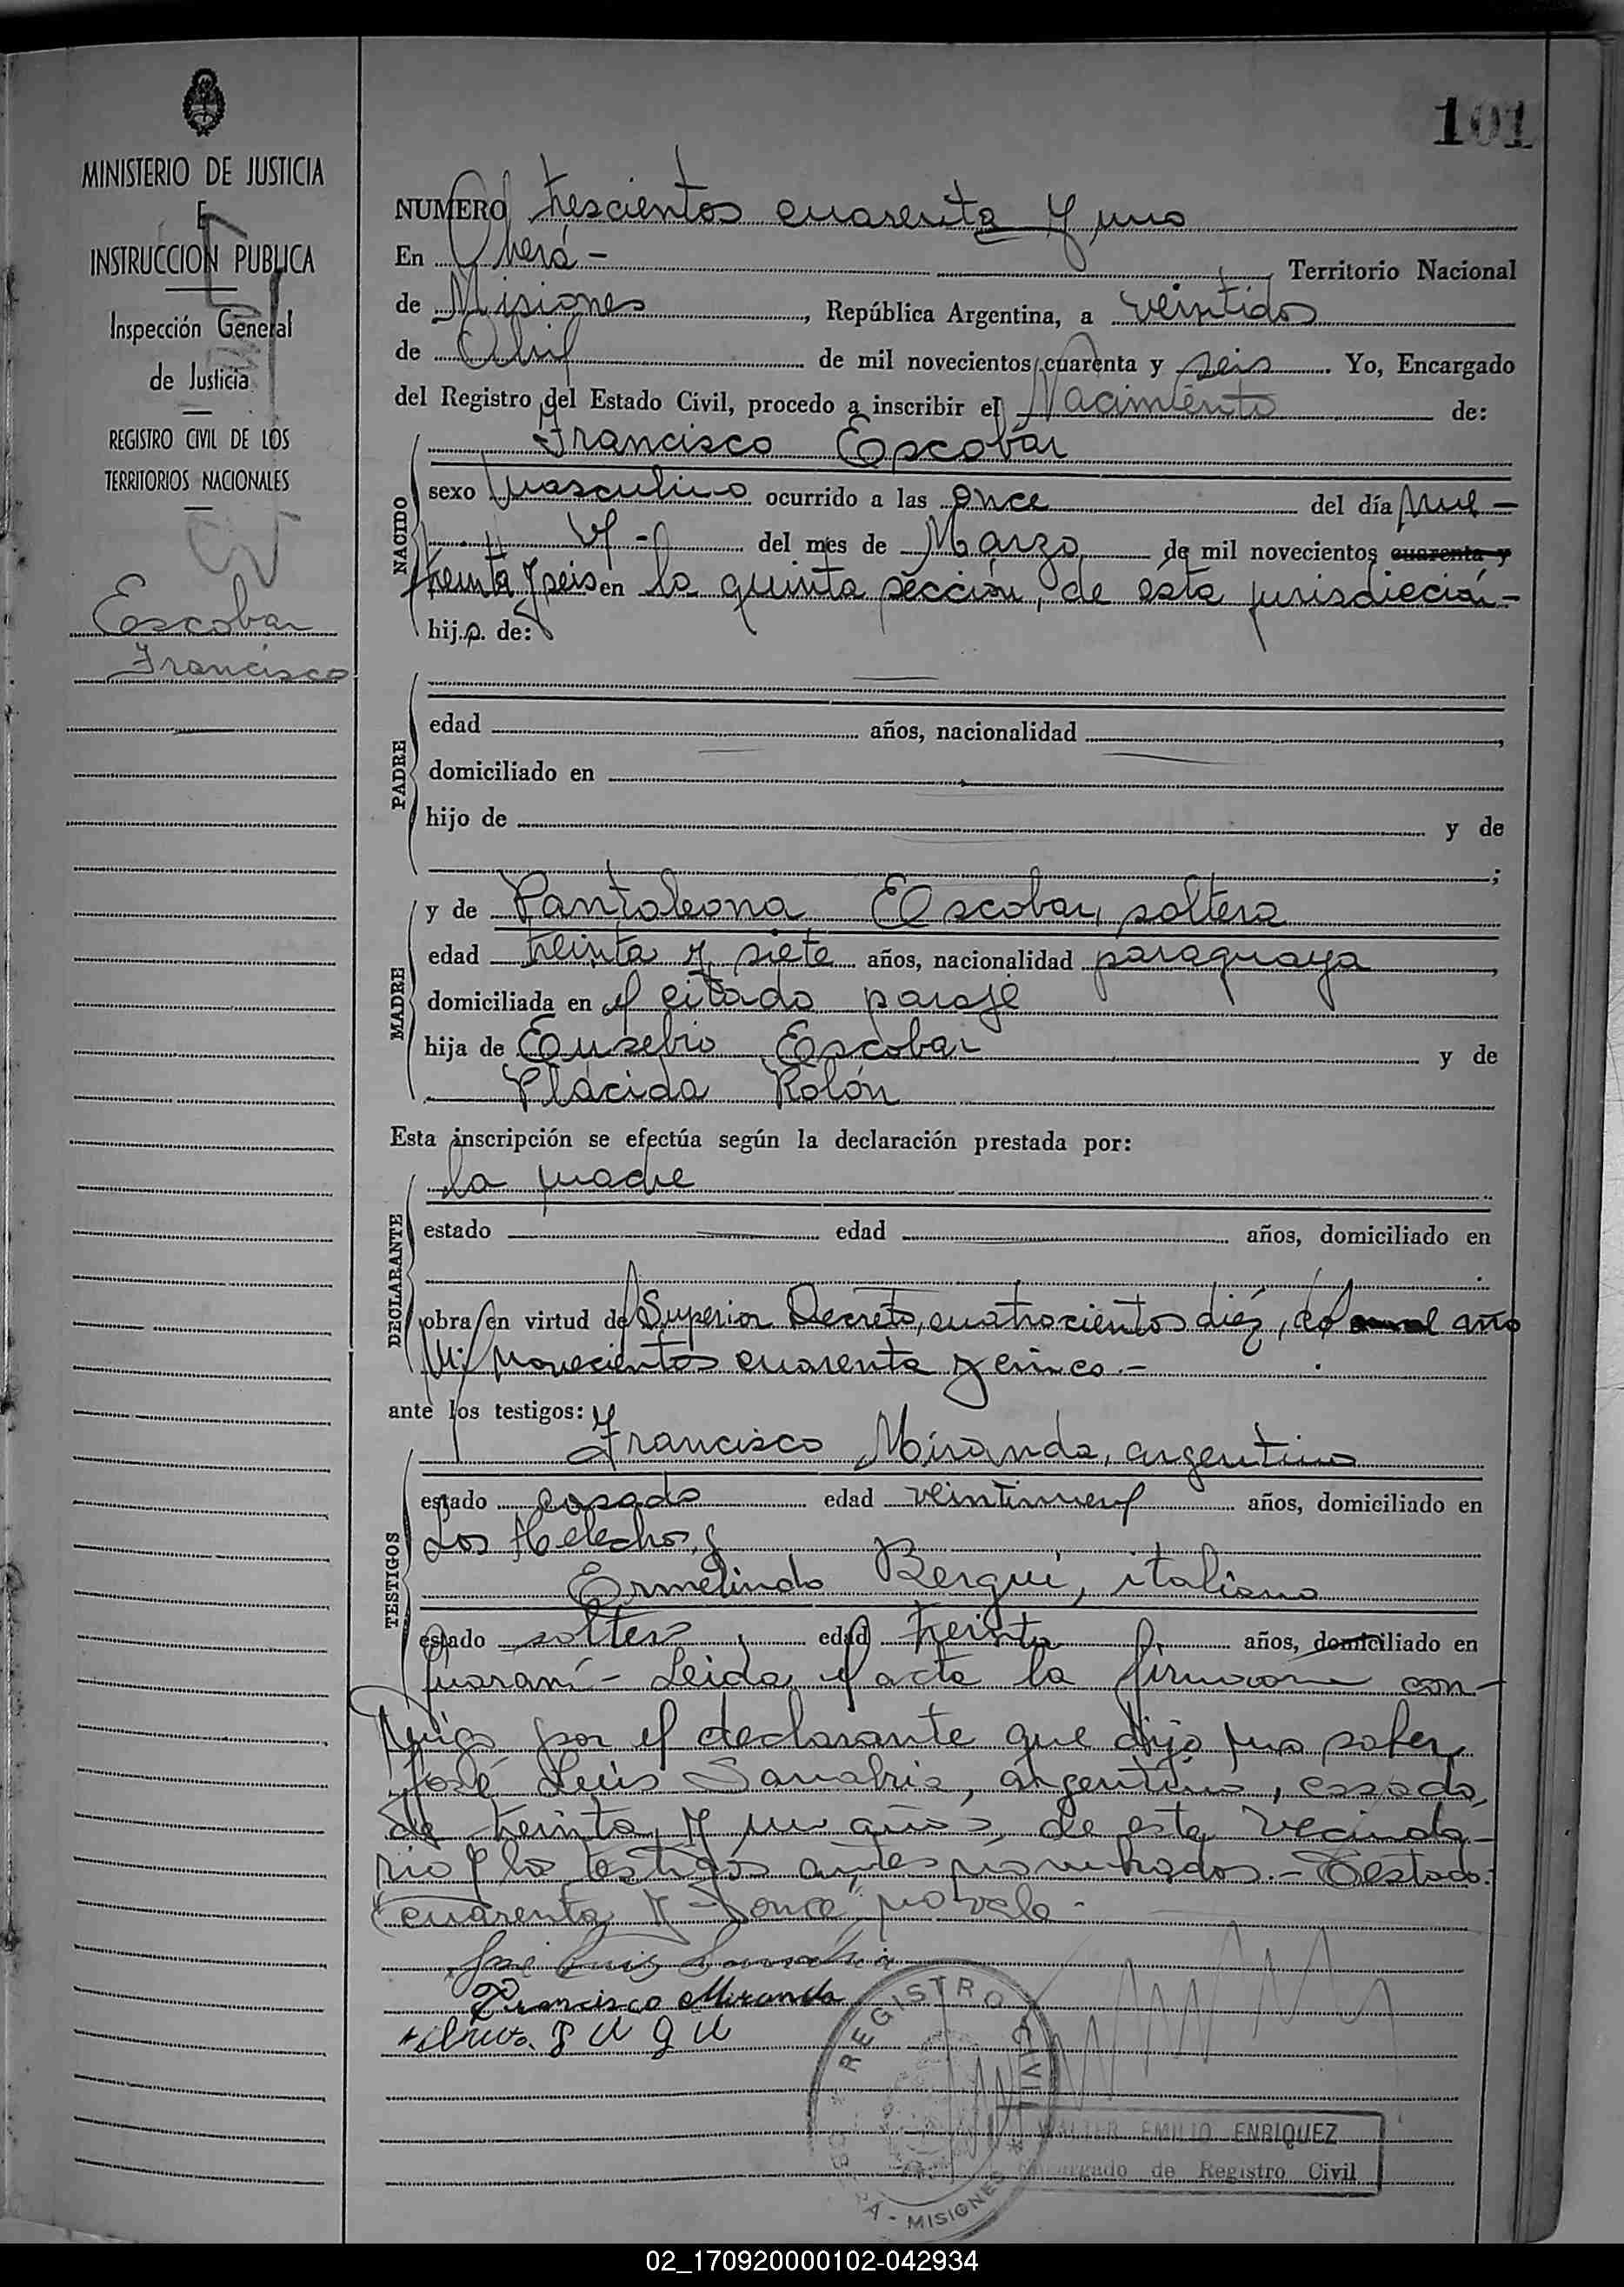 101
MINISTERIO DE JUSTICIA
E
INSTRUCCION PUBLICA
Inspección General
de Justicia
REGISTRO CIVIL DE LOS
TERRITORIOS NACIONALES
Escobar
Francisco
NUMERO trescientos cuarenta y uno
En Oberá - Territorio Nacional
de Misiones, República Argentina, a veintidos
de Abril de mil novecientos cuarenta y seis. Yo, Encargado
del Registro del Estado Civil, procedo a inscribir el Nacimiento de:
NACIDO
Francisco Escobar
sexo masculino ocurrido a las once del día nue-
ve - del mes de Marzo de mil novecientos cuarenta y
treinta y seis en la quinta sección, de ésta jurisdicción-
hijo de:
PADRE
edad años, nacionalidad
domiciliado en
hijo de y de
;
MADRE
y de Pantaleona Escobar, soltera
edad treinta y siete años, nacionalidad paraguaya
domiciliada en el citado paraje
hija de Eusebio Escobar y de
Plácida Rolón
Esta inscripción se efectúa según la declaración prestada por:
DECLARANTE
la madre
estado edad años, domiciliado en
obra en virtud del Superior Decreto, cuatrocientos diéz, año
mil novecientos cuarenta y cinco.-
ante los testigos:
TESTIGOS
Francisco Miranda, argentino
estado casado edad veintinueve años, domiciliado en
Los Helechos, y
Ermelindo Bergui, italiano
estado soltero edad treinta años, domiciliado en
Guaraní - Leida el acta la firmaron con-
migo por el declarante que dijo no saber
José Luis Sanabria, argentino, casado,
de treinta y un años, de este vecinda-
rio y los testigos antes nombrados.- Testado:
cuarenta y - no vale -
José Luis Sanabria
Francisco Miranda
REGISTRO CIVIL
OBERA - MISIONES
WALTER EMILIO ENRIQUEZ
Encargado de Registro Civil
02_170920000102-042934